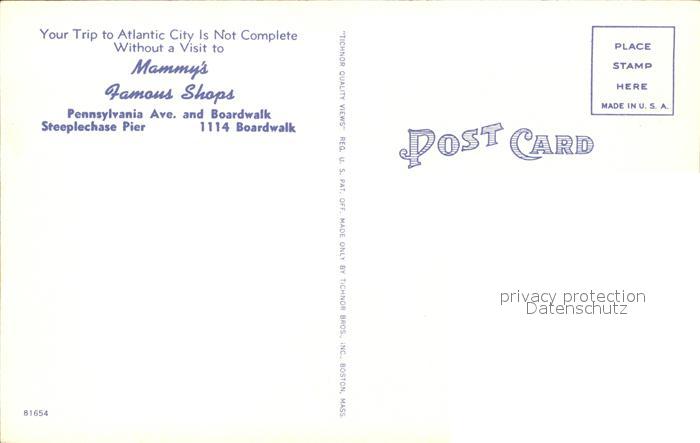 Your Trip to Atlantic City Is Not Complete
Without a Visit to
Mammy's
Famous Shops
Pennsylvania Ave. and Boardwalk
Steeplechase Pier 1114 Boardwalk
81654
"TICHNOR QUALITY VIEWS" REG. U. S. PAT. OFF. MADE ONLY BY TICHNOR BROS., INC., BOSTON, MASS.
PLACE
STAMP
HERE
MADE IN U. S. A.
POST CARD
privacy protection
Datenschutz